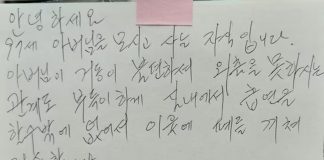 안녕하세요
97세 아버님를 모시고 사는 자식입니다.
아버님이 거동이 불편하셔 외출을 못하시는
관계로 부득이하게 실내에서 흡연을
할수밖에 없어서 이웃에 폐를 끼쳐